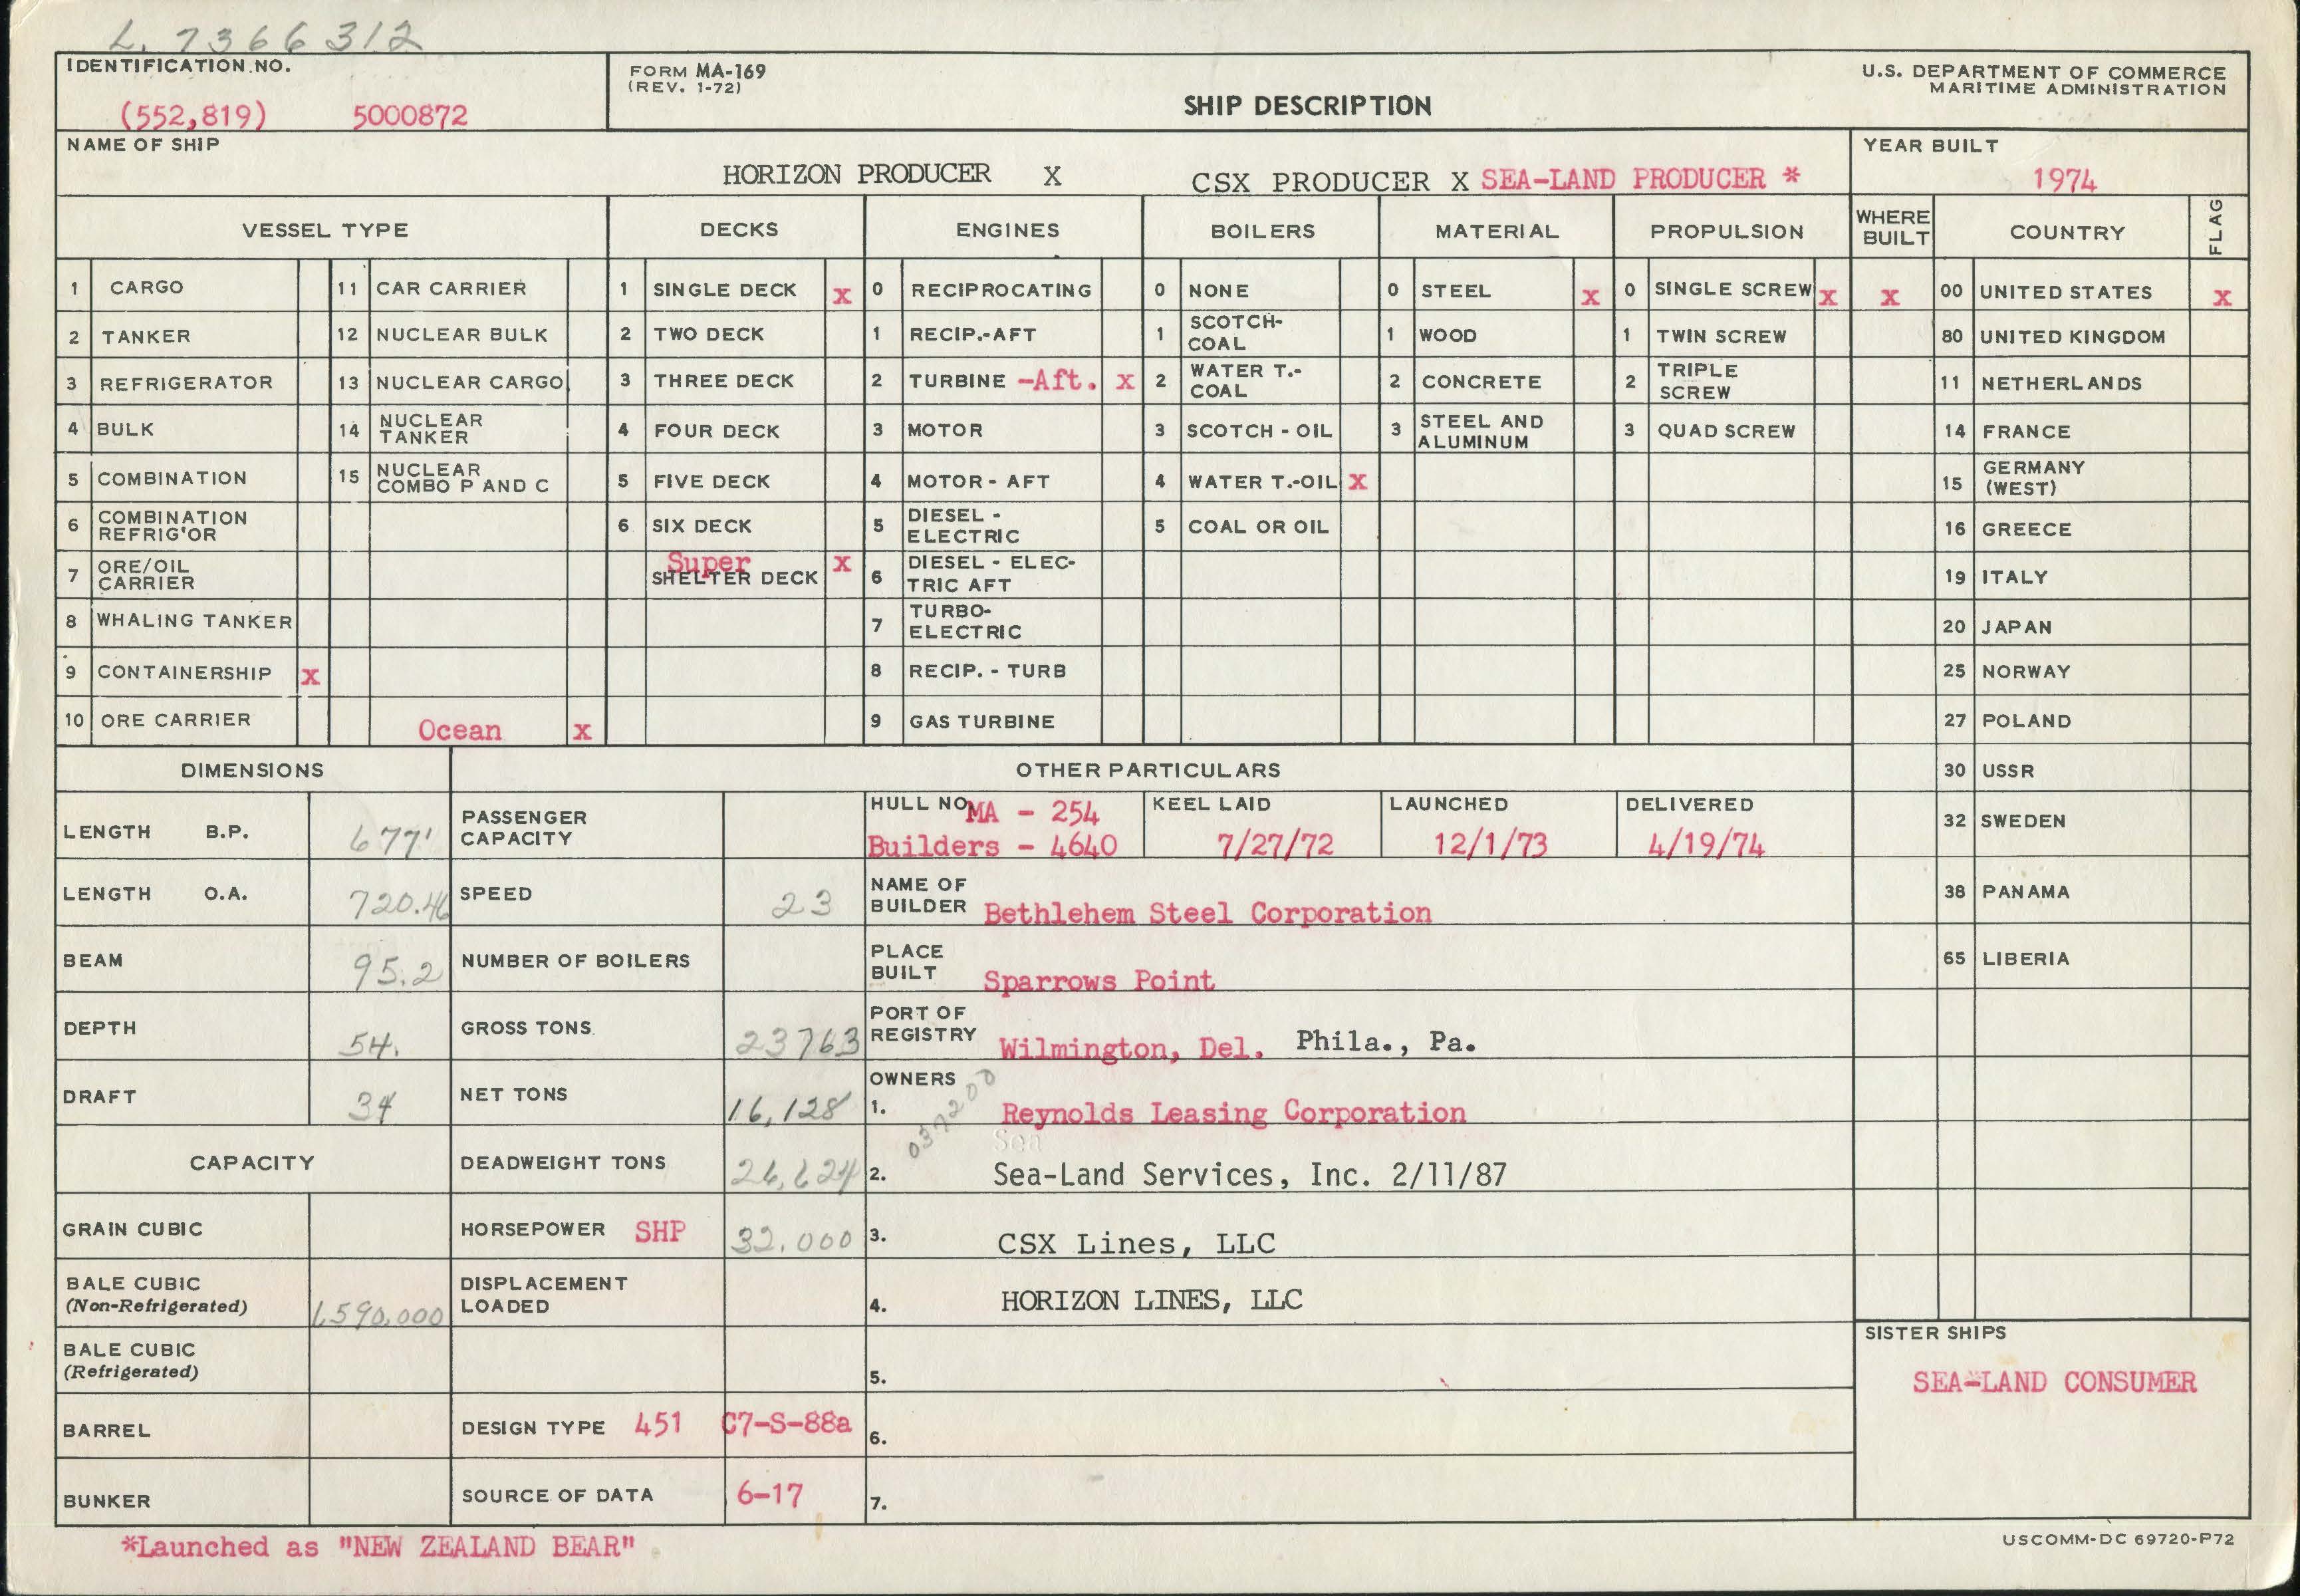 L. 7366312
IDENTIFICATION NO.
(552,819) 5000872
FORM MA-169
(REV. 1-72)
SHIP DESCRIPTION
U.S. DEPARTMENT OF COMMERCE
MARITIME ADMINISTRATION
NAME OF SHIP
HORIZON PRODUCER X CSX PRODUCER X SEA-LAND PRODUCER *
YEAR BUILT
1974
VESSEL TYPE DECKS ENGINES BOILERS MATERIAL PROPULSION WHERE BUILT COUNTRY FLAG
1 CARGO 11 CAR CARRIER 1 SINGLE DECK x 0 RECIPROCATING 0 NONE 0 STEEL x 0 SINGLE SCREW x x 00 UNITED STATES x
2 TANKER 12 NUCLEAR BULK 2 TWO DECK 1 RECIP.-AFT 1 SCOTCH-COAL 1 WOOD 1 TWIN SCREW 80 UNITED KINGDOM
3 REFRIGERATOR 13 NUCLEAR CARGO 3 THREE DECK 2 TURBINE -Aft. x 2 WATER T.-COAL 2 CONCRETE 2 TRIPLE SCREW 11 NETHERLANDS
4 BULK 14 NUCLEAR TANKER 4 FOUR DECK 3 MOTOR 3 SCOTCH - OIL 3 STEEL AND ALUMINUM 3 QUAD SCREW 14 FRANCE
5 COMBINATION 15 NUCLEAR COMBO P AND C 5 FIVE DECK 4 MOTOR - AFT 4 WATER T.-OIL x 15 GERMANY (WEST)
6 COMBINATION REFRIG'OR 6 SIX DECK 5 DIESEL - ELECTRIC 5 COAL OR OIL 16 GREECE
7 ORE/OIL CARRIER Super SHELTER DECK x 6 DIESEL - ELECTRIC AFT 19 ITALY
8 WHALING TANKER 7 TURBO-ELECTRIC 20 JAPAN
9 CONTAINERSHIP x 8 RECIP. - TURB 25 NORWAY
10 ORE CARRIER Ocean x 9 GAS TURBINE 27 POLAND
30 USSR
32 SWEDEN
38 PANAMA
65 LIBERIA
DIMENSIONS
LENGTH B.P. 677'
LENGTH O.A. 720.46
BEAM 95.2
DEPTH 54.
DRAFT 34
CAPACITY
GRAIN CUBIC
BALE CUBIC
(Non-Refrigerated) 1,590,000
BALE CUBIC
(Refrigerated)
BARREL
BUNKER
OTHER PARTICULARS
PASSENGER CAPACITY
SPEED 23
NUMBER OF BOILERS
GROSS TONS 23763
NET TONS 16,128
DEADWEIGHT TONS 26,624
HORSEPOWER SHP 32,000
DISPLACEMENT LOADED
DESIGN TYPE 451 C7-S-88a
SOURCE OF DATA 6-17
HULL NO. MA - 254
Builders - 4640
KEEL LAID
7/27/72
LAUNCHED
12/1/73
DELIVERED
4/19/74
NAME OF BUILDER Bethlehem Steel Corporation
PLACE BUILT Sparrows Point
PORT OF REGISTRY Wilmington, Del. Phila., Pa.
OWNERS
037200
1. Reynolds Leasing Corporation
Sea
2. Sea-Land Services, Inc. 2/11/87
3. CSX Lines, LLC
4. HORIZON LINES, LLC
5.
6.
7.
SISTER SHIPS
SEA-LAND CONSUMER
*Launched as "NEW ZEALAND BEAR"
USCOMM-DC 69720-P72